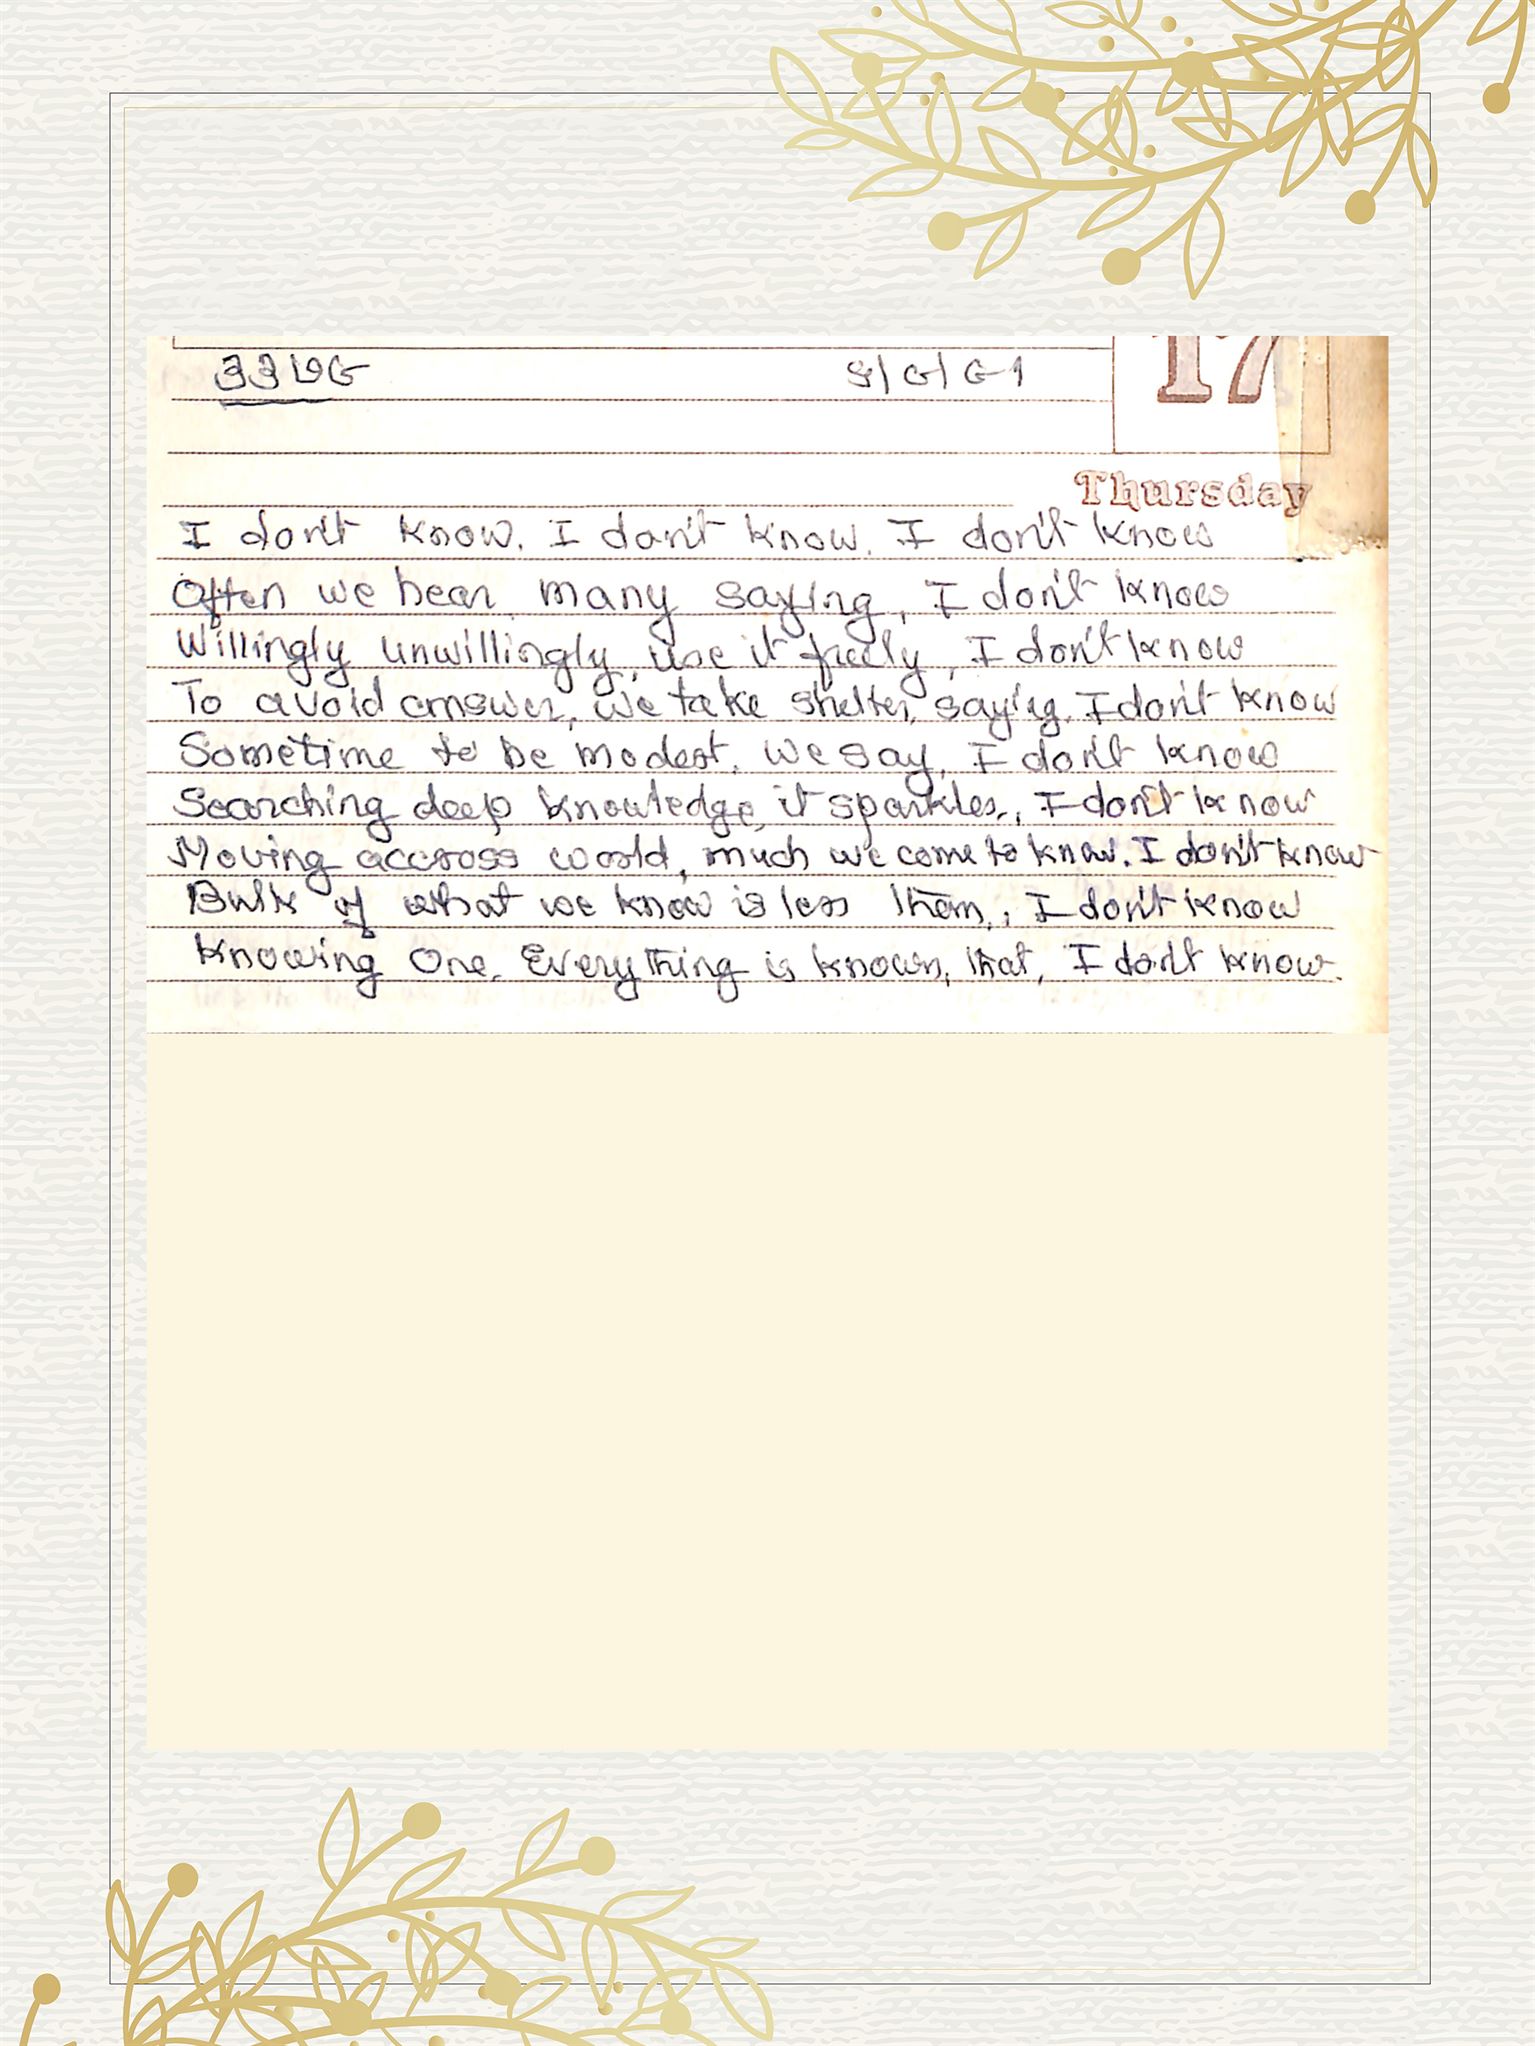 17
Thursday
I don't know. I don't know. I don't know
Often we hear many saying, I don't know
Willingly unwillingly, use it freely, I don't know
To avoid answer, we take shelter, saying, I don't know
Sometime to be modest, we say, I don't know
Searching deep knowledge, it sparkles, I don't know
Moving accross world, much we come to know, I don't know
Bulk of what we know is less then, I don't know
Knowing One, Everything is known, that, I don't know.